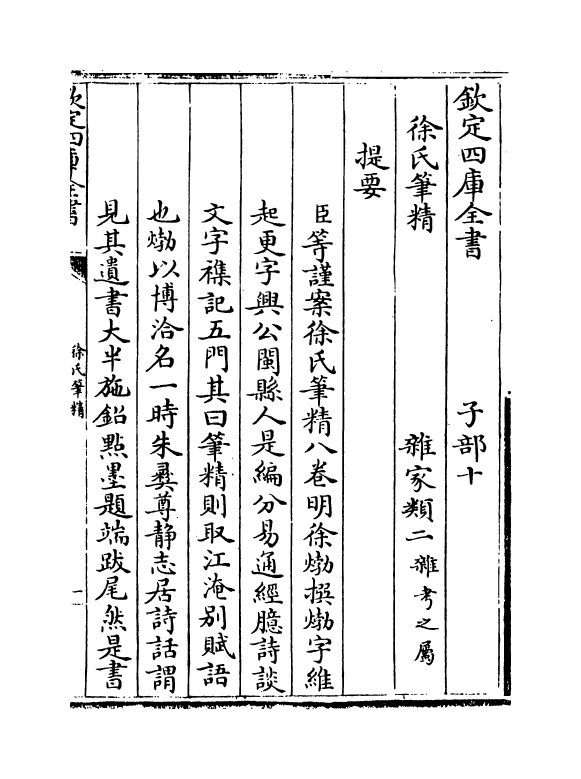 欽定四庫全書 子部十
徐氏筆精 雜家類二雜考之屬
提要
臣等謹案徐氏筆精八卷明徐𤊹撰𤊹字維
起更字興公閩縣人是編分易通經臆詩談
文字襍記五門其曰筆精則取江淹别賦語
也𤊹以博洽名一時朱彛尊静志居詩話謂
見其遺書大半施鉛㸃墨題端跋尾然是書
欽定四庫全書
徐氏筆精
一